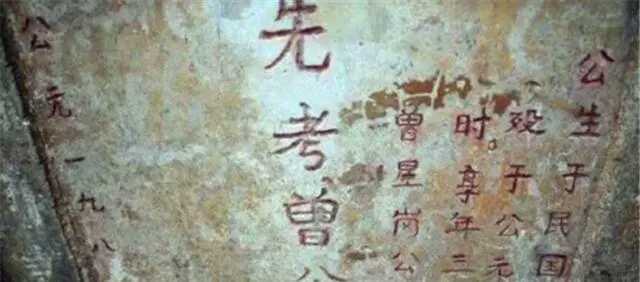 公生于民国
殁于公元
时。享年三
曾星岗公
先考曾公
公元一九八